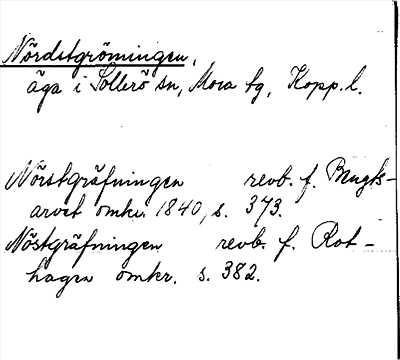 Nördstgrömningen,
äga i Sollerö sn, Mora tg, Kopp. l.
Nörstgräfningen revb. f. Bengts-
arvet omkr. 1840, s. 373.
Nöstgräfningen revb. f. Rot-
hagen omkr. s. 382.